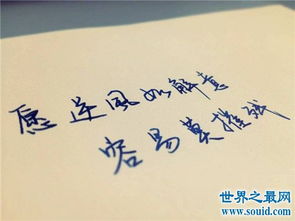 愿逆风如解意
容易莫摧残
世界之最网
www.souid.com